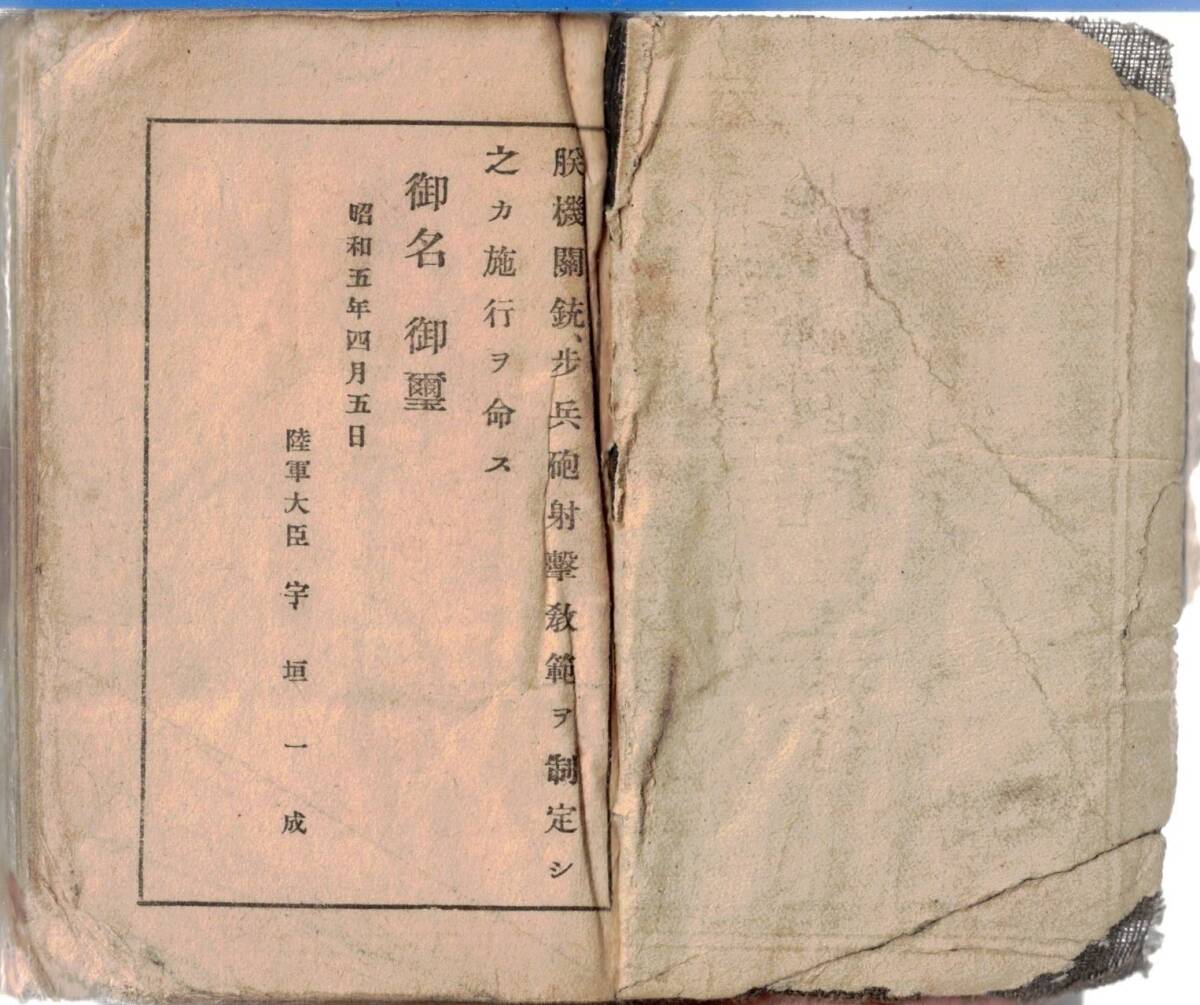 朕機關銃、步兵砲射擊敎範ヲ制定シ
之カ施行ヲ命ス
御名 御璽
昭和五年四月五日
陸軍大臣 宇垣一成